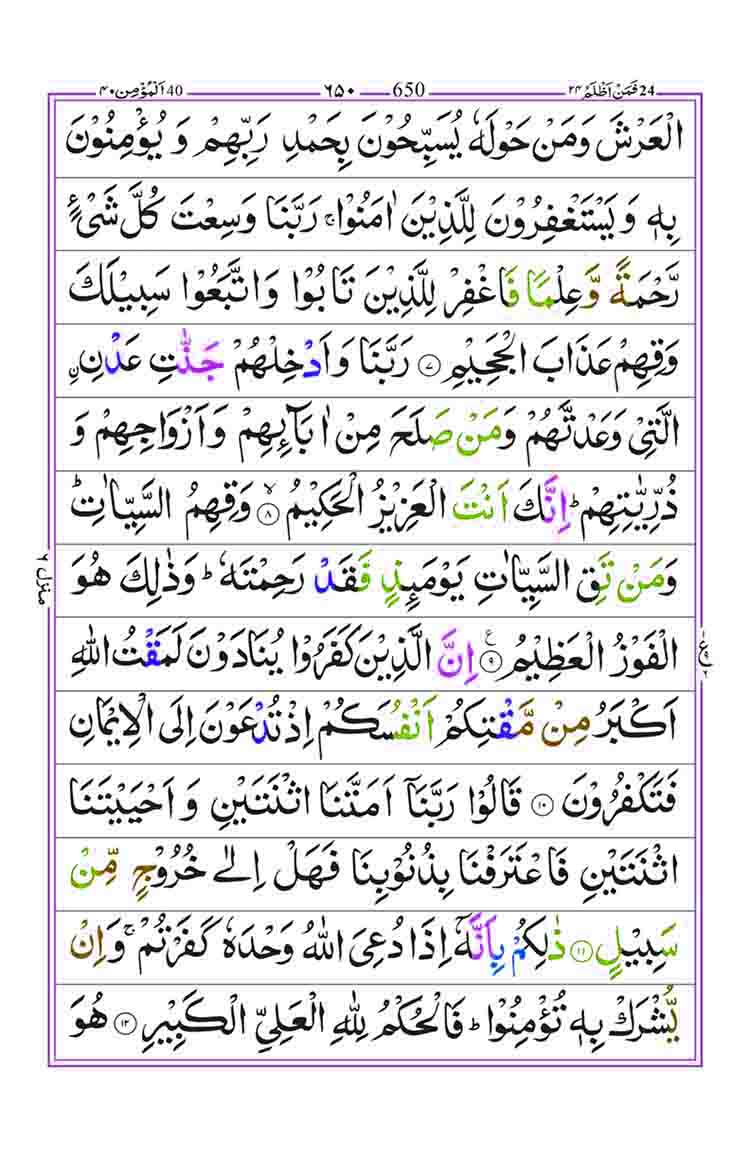 24 فَمَنْ اَظْلَمُ ۲۴ 650 ۶۵۰ 40 اَلْمُؤْمِن ۴۰
الْعَرْشَ وَمَنْ حَوْلَهٗ يُسَبِّحُوْنَ بِحَمْدِ رَبِّهِمْ وَ يُؤْمِنُوْنَ
بِهٖ وَ يَسْتَغْفِرُوْنَ لِلَّذِيْنَ اٰمَنُوْاۚ رَبَّنَا وَسِعْتَ كُلَّ شَىْءٍ
رَّحْمَةً وَّعِلْمًا فَاغْفِرْ لِلَّذِيْنَ تَابُوْا وَاتَّبَعُوْا سَبِيْلَكَ
وَقِهِمْ عَذَابَ الْجَحِيْمِ ۷ رَبَّنَا وَاَدْخِلْهُمْ جَنّٰتِ عَدْنِ ن
الَّتِىْ وَعَدْتَّهُمْ وَمَنْ صَلَحَ مِنْ اٰبَآئِهِمْ وَاَزْوَاجِهِمْ وَ
ذُرِّيّٰتِهِمْؕ اِنَّكَ اَنْتَ الْعَزِيْزُ الْحَكِيْمُ ۙ۸ وَقِهِمُ السَّيِّاٰتِؕ
وَمَنْ تَقِ السَّيِّاٰتِ يَوْمَئِذٍ فَقَدْ رَحِمْتَهٗؕ وَذٰلِكَ هُوَ
الْفَوْزُ الْعَظِيْمُ ۹ع اِنَّ الَّذِيْنَ كَفَرُوْا يُنَادَوْنَ لَمَقْتُ اللّٰهِ
اَكْبَرُ مِنْ مَّقْتِكُمْ اَنْفُسَكُمْ اِذْ تُدْعَوْنَ اِلَى الْاِيْمَانِ
فَتَكْفُرُوْنَ ۱۰ قَالُوْا رَبَّنَاۤ اَمَتَّنَا اثْنَتَيْنِ وَ اَحْيَيْتَنَا
اثْنَتَيْنِ فَاعْتَرَفْنَا بِذُنُوْبِنَا فَهَلْ اِلٰى خُرُوْجٍ مِّنْ
سَبِيْلٍ ۱۱ ذٰلِكُمْ بِاَنَّهٗۤ اِذَا دُعِىَ اللّٰهُ وَحْدَهٗ كَفَرْتُمْۚ وَاِنْ
يُّشْرَكْ بِهٖ تُؤْمِنُوْاؕ فَالْحُكْمُ لِلّٰهِ الْعَلِىِّ الْكَبِيْرِ ۱۲ هُوَ
منزل ۶